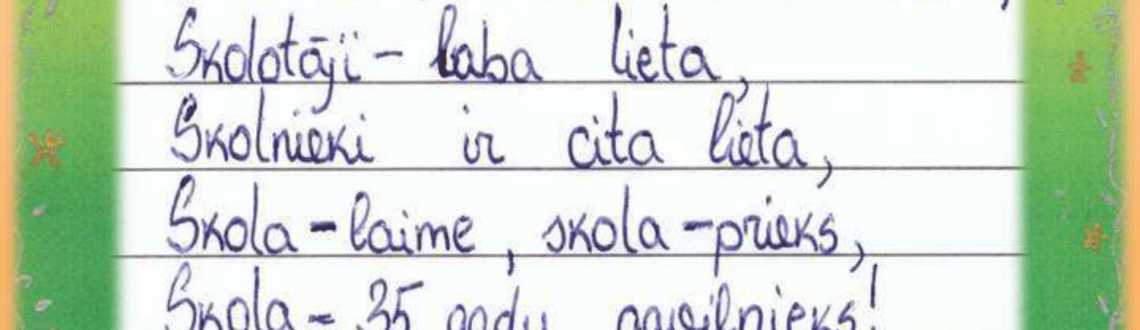 Skolotāji - laba lieta,
Skolnieki ir cita lieta,
Skola - laime, skola - prieks,
Skola - 35 gadu gavilnieks!